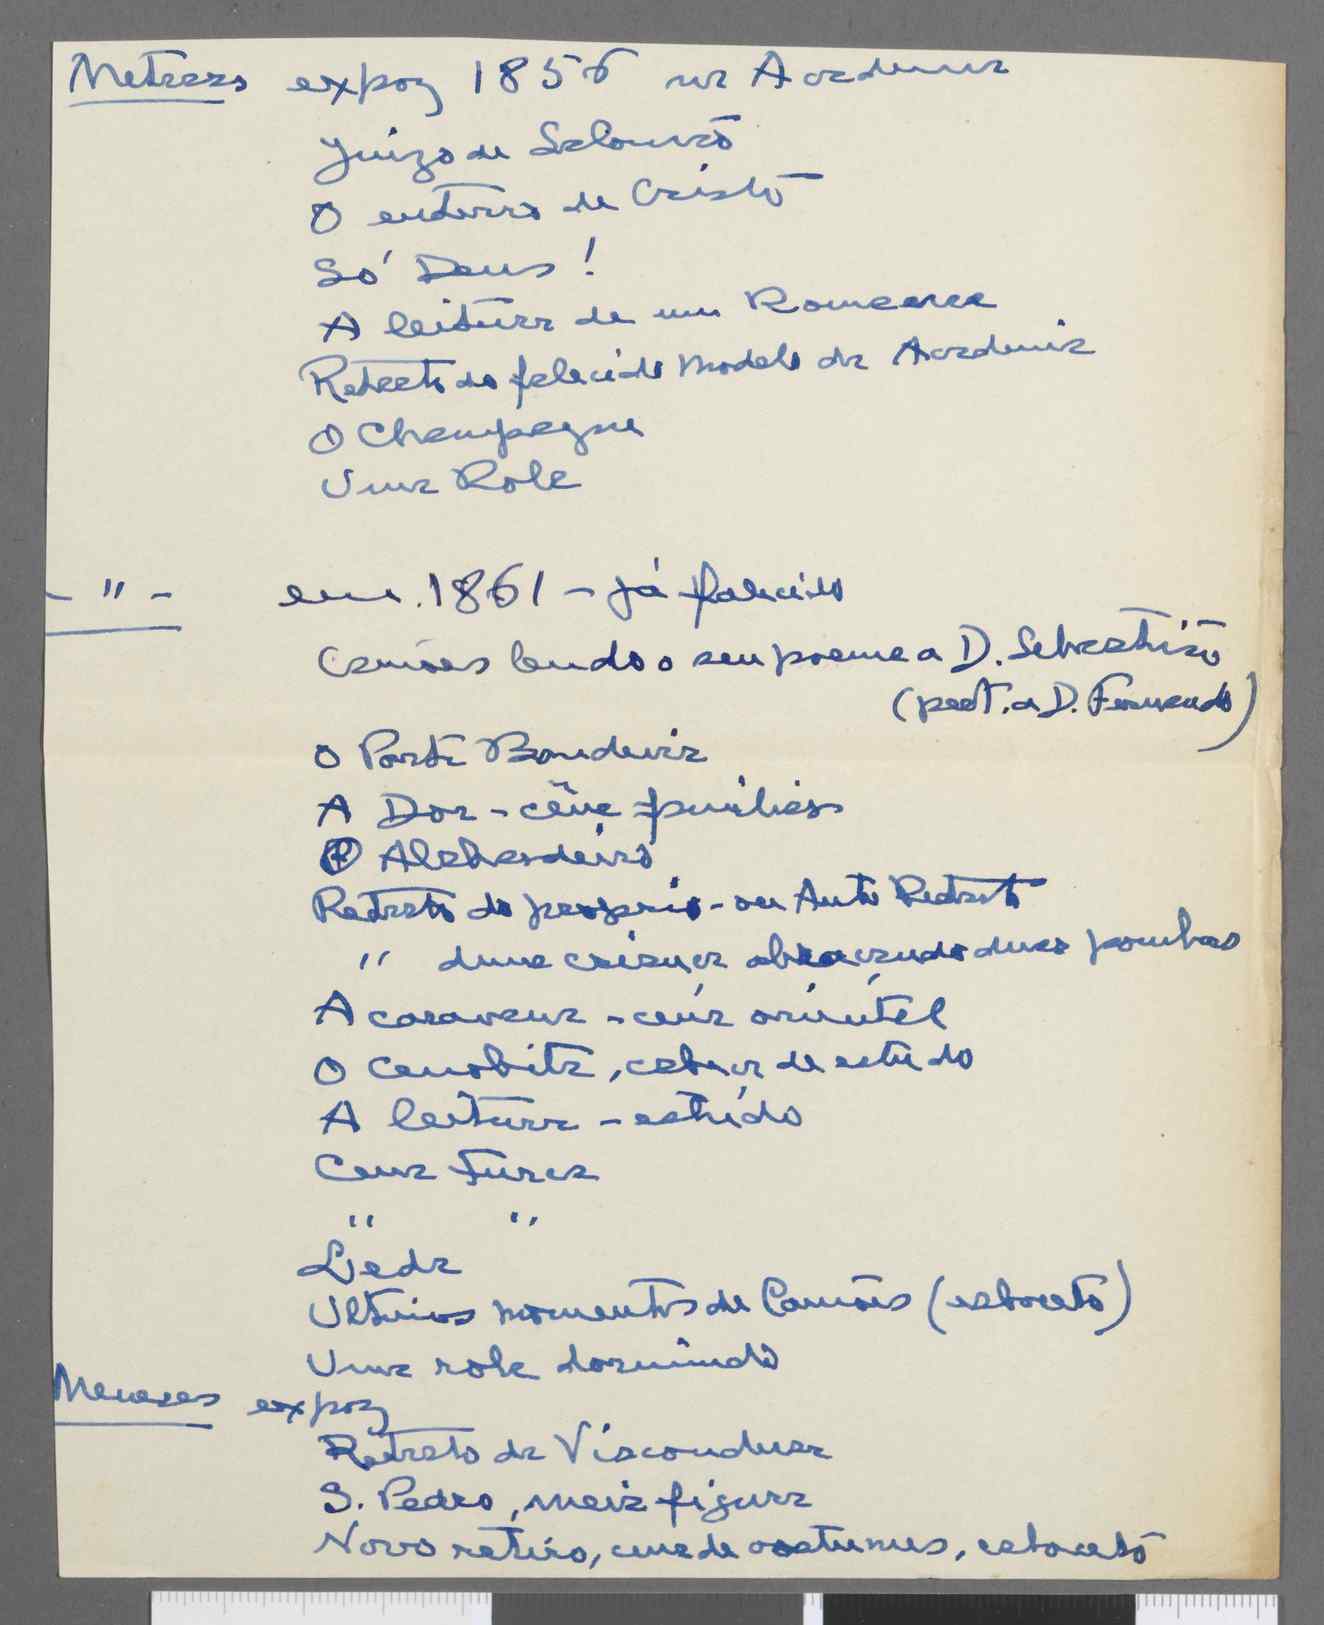 Metrass expoz 1856 na Academia
Juizo de Salomão
O enterro de Cristo
Só Deus!
A leitura de um Romance
Retrato do falecido Modelo da Academia
O Champagne
Uma Rola
- " - em 1861 - já falecido
Camões lendo o seu poema a D. Sebastião
(pert. a D. Fernando)
O Porta Bandeira
A Dor - cêna familiar
O Alabardeiro
Retrato do proprio - ou Auto Retrato
" duma criança abraçando duas pombas
A caravana - cena oriental
O Cenobita, cabeça de estudo
A leitura - estudo
Cena Turca
" "
Lêda
Ultimos momentos de Camões (esboceto)
Uma rola dormindo
Meneses expoz
Retrato da Viscondessa
S. Pedro, meia figura
Novo retiro, cena de costumes, esboceto